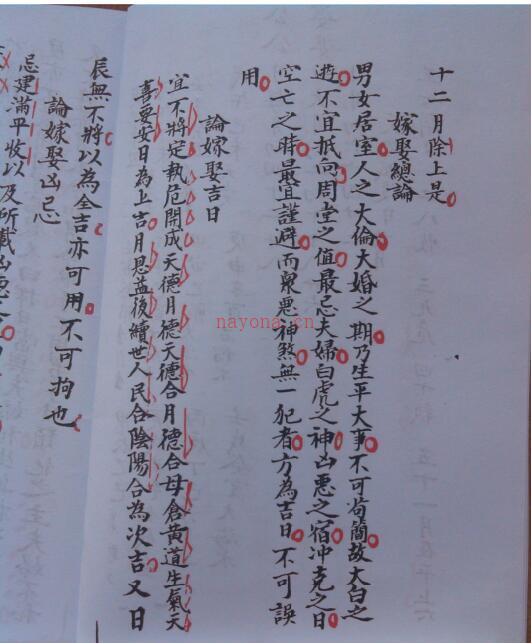 十二月除上是
嫁娶總論
男女居室人之大倫大婚之期乃生平大事不可苟簡故太白之
遊不宜抵向周堂之值最忌夫婦白虎之神凶惡之宿冲克之日
空亡之時最宜謹避而眾惡神煞無一犯者方為吉日不可誤
用
論嫁娶吉日
宜不將定執危開成天德月德天德合月德合母倉黃道生氣天
喜要安日為上吉月恩益後續世人民合陰陽合為次吉又日
辰無不將以為全吉亦可用不可拘也
論嫁娶凶忌
忌建滿平收以及所載凶惡
nayona.cn